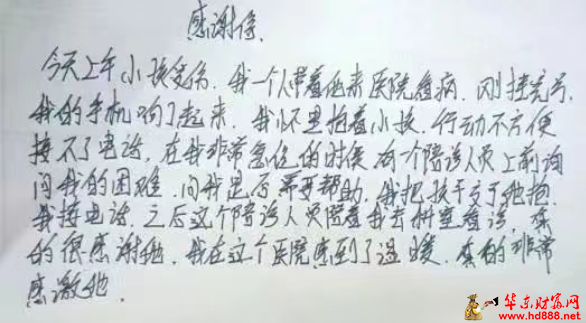 感谢信.
今天上午小孩受伤.我一个人带着他来医院看病.刚挂完号.
我的手机响了起来.我怀里抱着小孩.行动不方便
接不了电话.在我非常急忙的时候有一个陪诊人员上前询
问我的困难.问我是否需要帮助.我把孩子交于她抱.
我接电话.之后这个陪诊人员陪着我去科室看诊.真
的很感谢她.我在这个医院感到了温暖.真的非常
感激她.
华东财富网
www.hd888.net